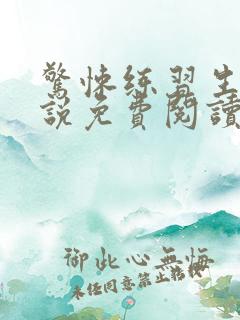 驚悚练習生
說免費閱讀
御此心無悔
未经同意禁止转载